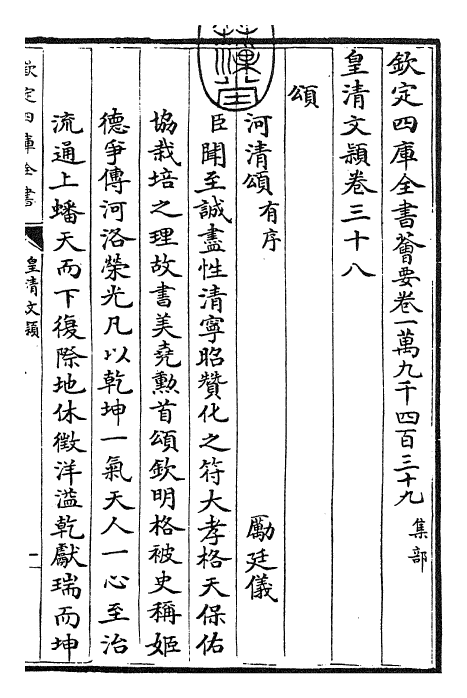 欽定四庫全書薈要卷一萬九千四百三十九 集部
皇清文穎卷三十八
頌
河清頌有序 勵廷儀
臣聞至誠盡性清寧昭贊化之符大孝格天保佑
協栽培之理故書美堯勲首頌欽明格被史稱姬
德爭傳河洛榮光凡以乾坤一氣天人一心至治
流通上蟠天而下復際地休徵洋溢乾獻瑞而坤
欽定四庫全書
皇清文穎